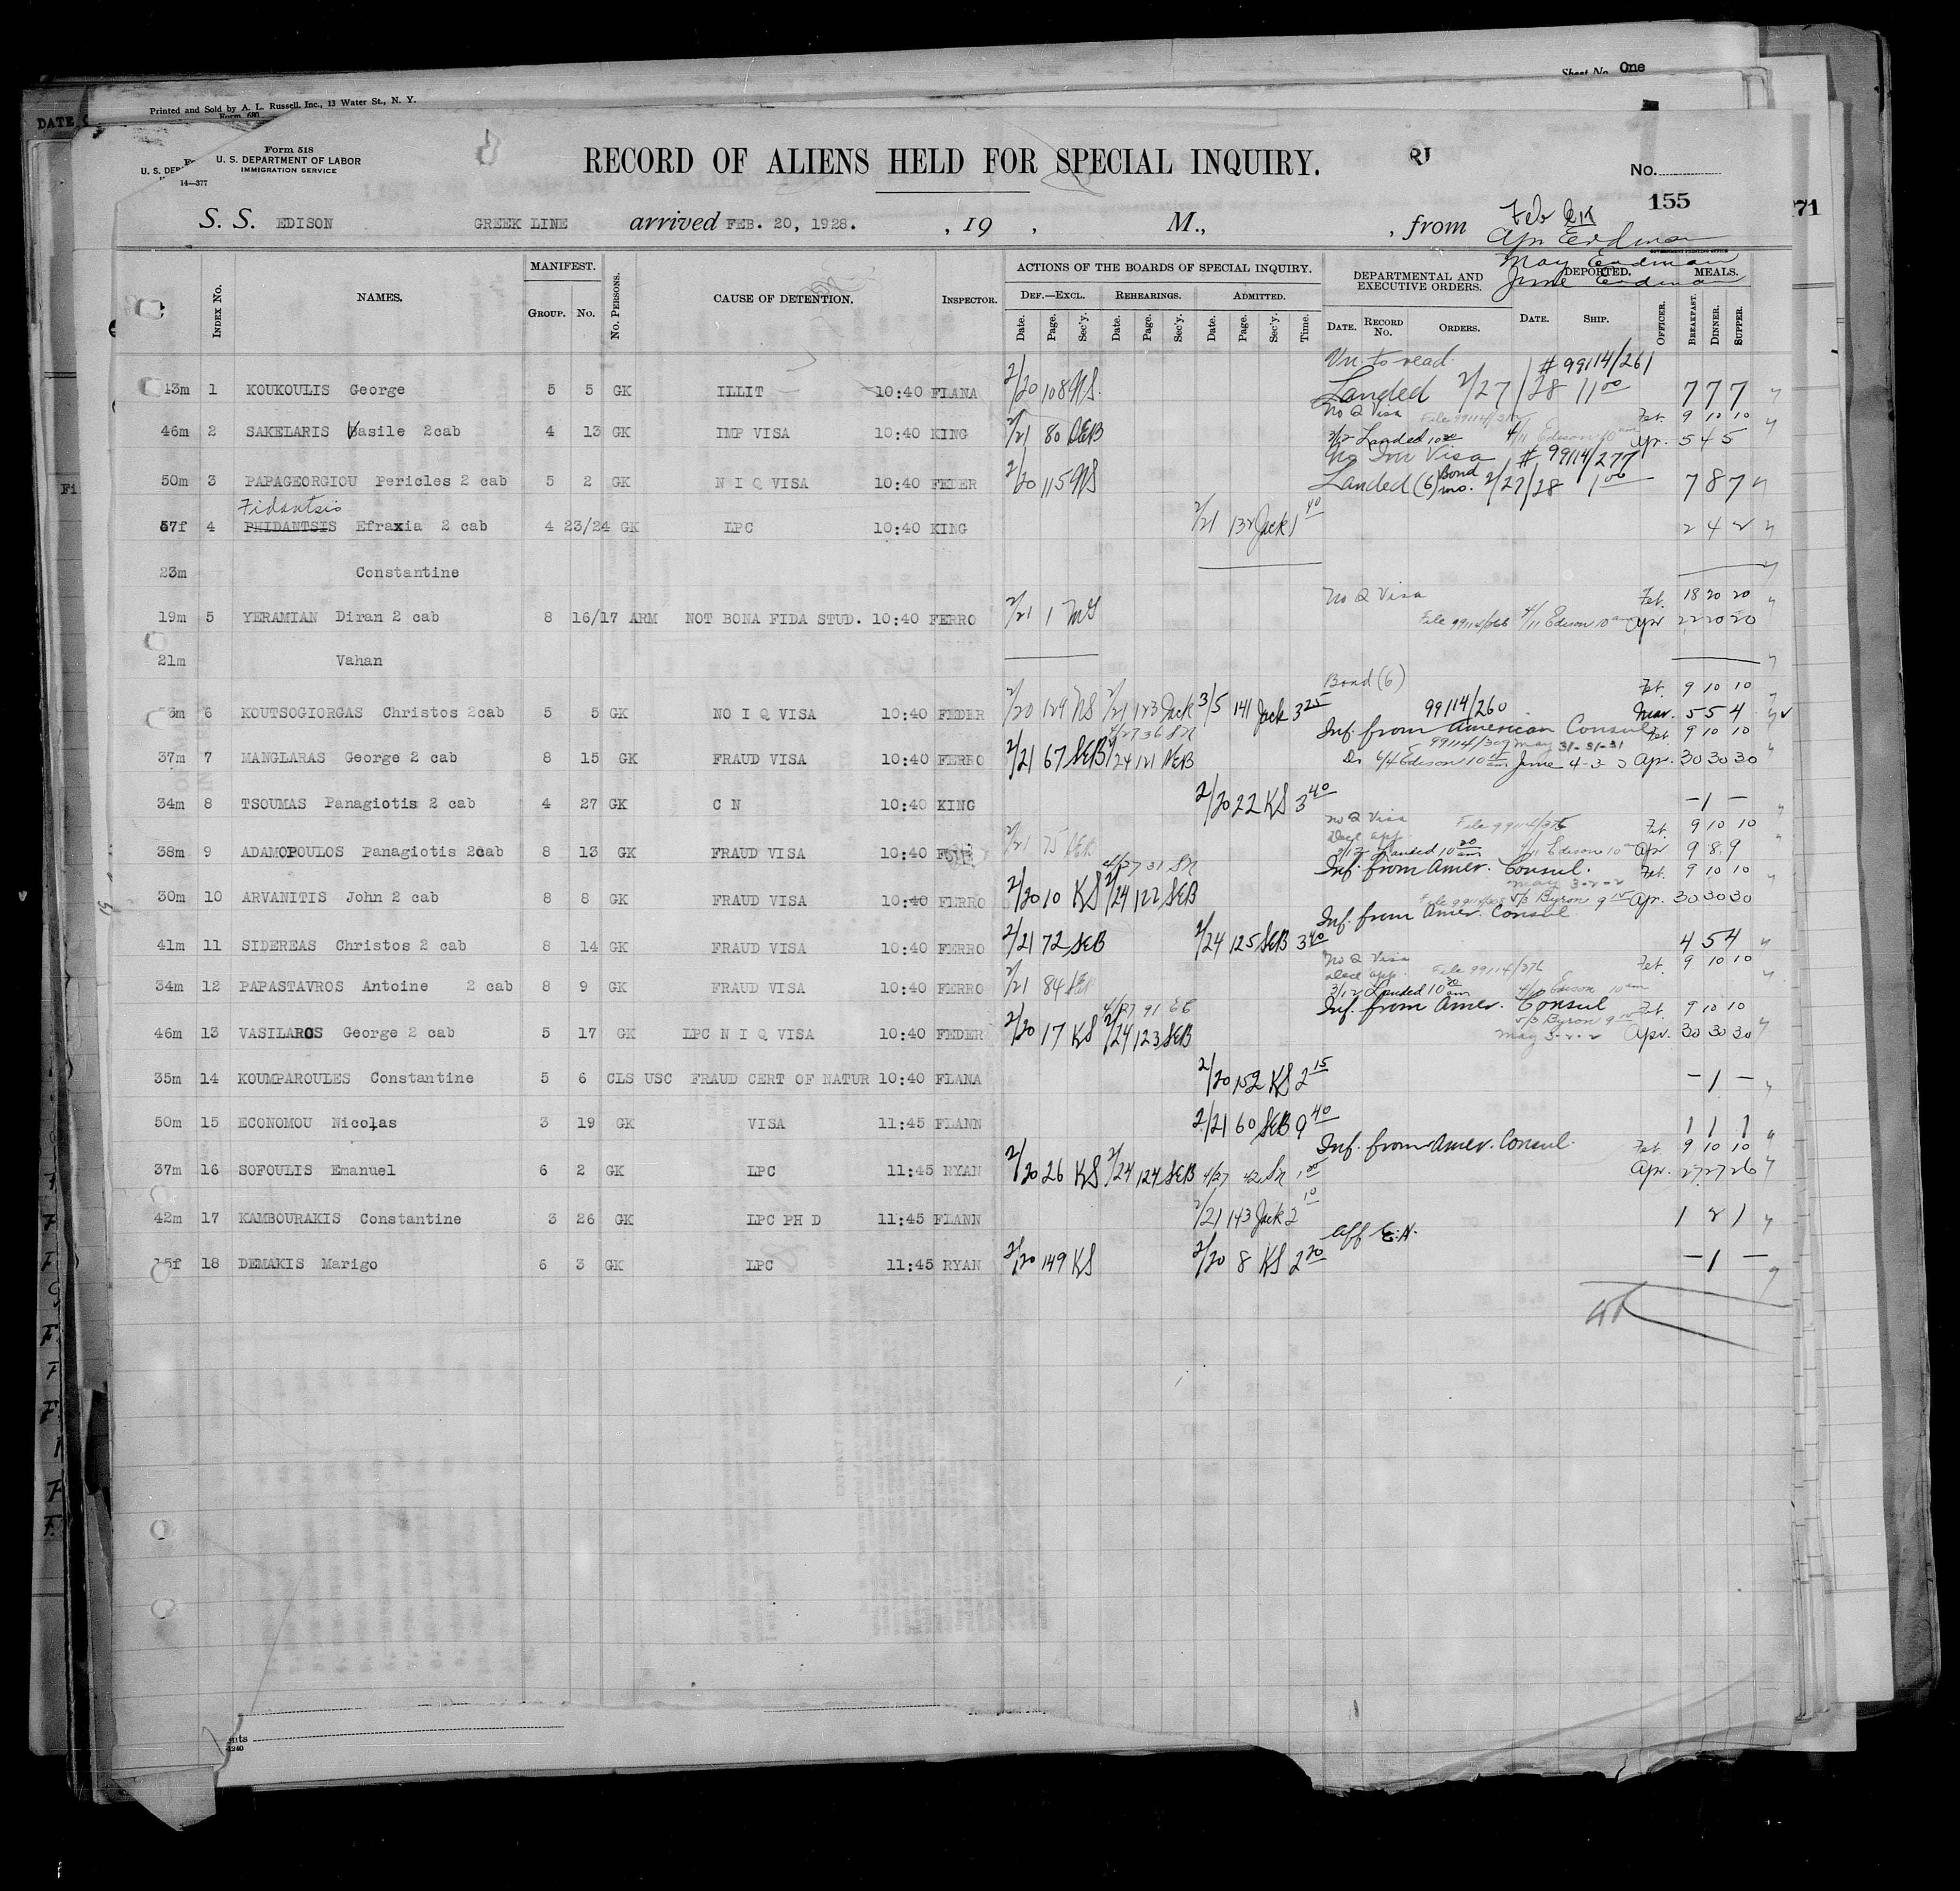 Sheet No. One
Printed and Sold by A. L. Russell, Inc., 13 Water St., N. Y.
Form 630
DATE
Form 518
U. S. DEPARTMENT OF LABOR
IMMIGRATION SERVICE
U. S. DEP
14—377
RECORD OF ALIENS HELD FOR SPECIAL INQUIRY.
No.
155
71
S. S. EDISON GREEK LINE arrived FEB. 20, 1928. , 19 , M., , from
Feb
Apr Erdman
May Erdman
June Erdman
INDEX No. NAMES. MANIFEST. GROUP. No. No. PERSONS. CAUSE OF DETENTION. INSPECTOR. ACTIONS OF THE BOARDS OF SPECIAL INQUIRY. DEPARTMENTAL AND EXECUTIVE ORDERS. DEPORTED. MEALS.
DEF.—EXCL. REHEARINGS. ADMITTED.
Date. Page. Sec'y. Date. Page. Sec'y. Date. Page. Sec'y. Time. DATE. RECORD No. ORDERS. DATE. SHIP. OFFICER. BREAKFAST. DINNER. SUPPER.
Un. to read # 99114/261
43m 1 KOUKOULIS George 5 5 GK ILLIT 10:40 FLANA 2/20 108 NS. Landed 2/27/28 11 00 7 7 7
No Q Visa Feb. 9 10 10
46m 2 SAKELARIS Vasile 2cab 4 13 GK IMP VISA 10:40 KING 2/21 80 Landed 4/11 Edison 10 am Apr. 5 4 5
No Imm Visa # 99114/277
50m 3 PAPAGEORGIOU Pericles 2 cab 5 2 GK N I Q VISA 10:40 FEDER 2/20 115 NS Landed (6) Bond mo. 2/27/28 1 00 7 8 7
Fidantsis
57f 4 PHIDANTSIS Efraxia 2 cab 4 23/24 GK LPC 10:40 KING 2/21 132 Jack 1 40 2 4 2
23m Constantine
No Q Visa Feb. 18 20 20
19m 5 YERAMIAN Diran 2 cab 8 16/17 ARM NOT BONA FIDA STUD. 10:40 FERRO 2/21 1 File 99114/266 4/11 Edison 10 am Apr 22 20 20
21m Vahan
Bond (6) Feb. 9 10 10
53m 6 KOUTSOGIORGAS Christos 2cab 5 5 GK NO I Q VISA 10:40 FEDER 2/20 129 NS 2/21 123 Jack 3/5 141 Jack 3 25 99114/260 Mar. 5 5 4
Inf. from American Consul Feb. 9 10 10
4/27 36
99114/309 May 31-31-31
37m 7 MANGLARAS George 2 cab 8 15 GK FRAUD VISA 10:40 FERRO 2/21 67 SEB 2/24 121 SEB 6/4 Edison 10 am June 4-3-3 Apr. 30 30 30
34m 8 TSOUMAS Panagiotis 2 cab 4 27 GK C N 10:40 KING 2/20 22 KS 3 40 — 1 —
No Q Visa Feb. 9 10 10
38m 9 ADAMOPOULOS Panagiotis 2cab 8 13 GK FRAUD VISA 10:40 2/21 75 SEB Landed 10 20 am 4/11 Edison 10 am Apr 9 8 9
Inf. from Amer. Consul. Feb. 9 10 10
4/27 31
May 3-2-2
30m 10 ARVANITIS John 2 cab 8 8 GK FRAUD VISA 10:40 FERRO 2/20 10 KS 2/24 122 SEB Byron 9 Apr. 30 30 30
Inf. from Amer. Consul.
41m 11 SIDEREAS Christos 2 cab 8 14 GK FRAUD VISA 10:40 FERRO 2/21 72 SEB 2/24 125 SEB 3 40 4 5 4
No Q Visa Feb. 9 10 10
File 99114/276
34m 12 PAPASTAVROS Antoine 2 cab 8 9 GK FRAUD VISA 10:40 FERRO 2/21 84 SEB 3/12 Landed 10 20 am Edison 10 am
Inf. from Amer. Consul Feb. 9 10 10
4/27 91
Byron 9
46m 13 VASILAROS George 2 cab 5 17 GK LPC N I Q VISA 10:40 FEDER 2/20 17 KS 2/24 123 SEB May 3-2-2 Apr. 30 30 30
35m 14 KOUMPAROULES Constantine 5 6 CLS USC FRAUD CERT OF NATUR 10:40 FLANA 2/20 152 KS 2 15 — 1 —
50m 15 ECONOMOU Nicolas 3 19 GK VISA 11:45 FLANN 2/21 60 SEB 9 40 1 1 1
Inf. from Amer. Consul. Feb. 9 10 10
37m 16 SOFOULIS Emanuel 6 2 GK LPC 11:45 RYAN 2/20 26 KS 2/24 124 SEB 4/27 42 Apr. 27 27 26
42m 17 KAMBOURAKIS Constantine 3 26 GK LPC PH D 11:45 FLANN 2/21 143 Jack 2 10 1 2 1
aff
15f 18 DEMAKIS Marigo 6 3 GK LPC 11:45 RYAN 2/20 149 KS 2/20 8 KS 2 20 — 1 —